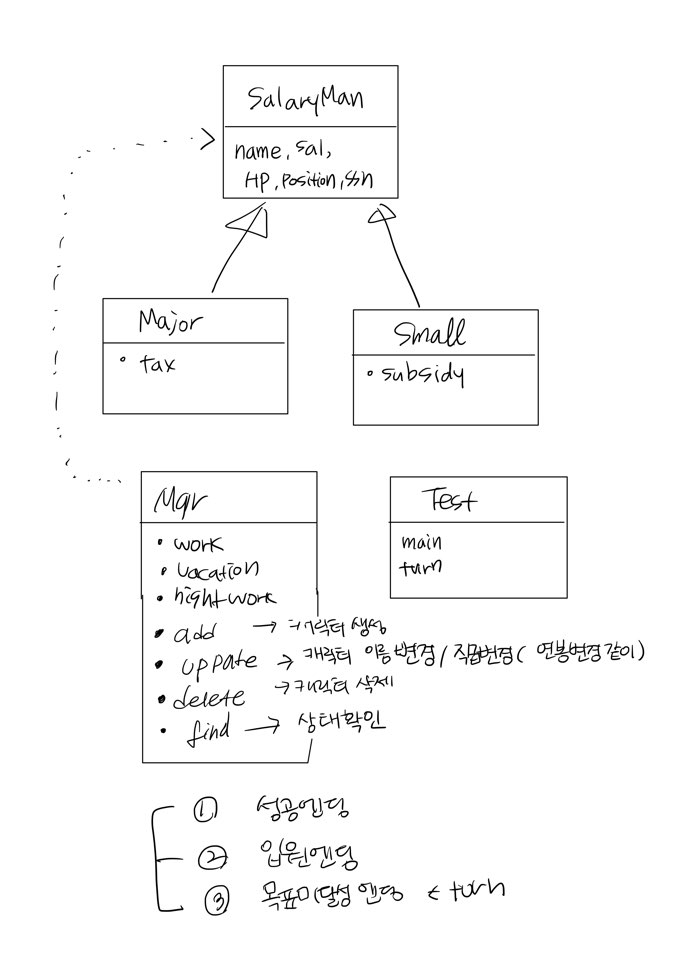 SalaryMan
name, sal,
HP, position, ssn
Major
• tax
Small
• subsidy
Mgr
• work
• vacation
• nightwork
• add → 캐릭터 생성
• uppate → 캐릭터 이름변경 / 직급변경 ( 연봉변경 같이)
• delete → 캐릭터 삭제
• find → 상태확인
Test
main
turn
① 성공엔딩
② 입원엔딩
③ 목표미달성 엔딩 ← turn